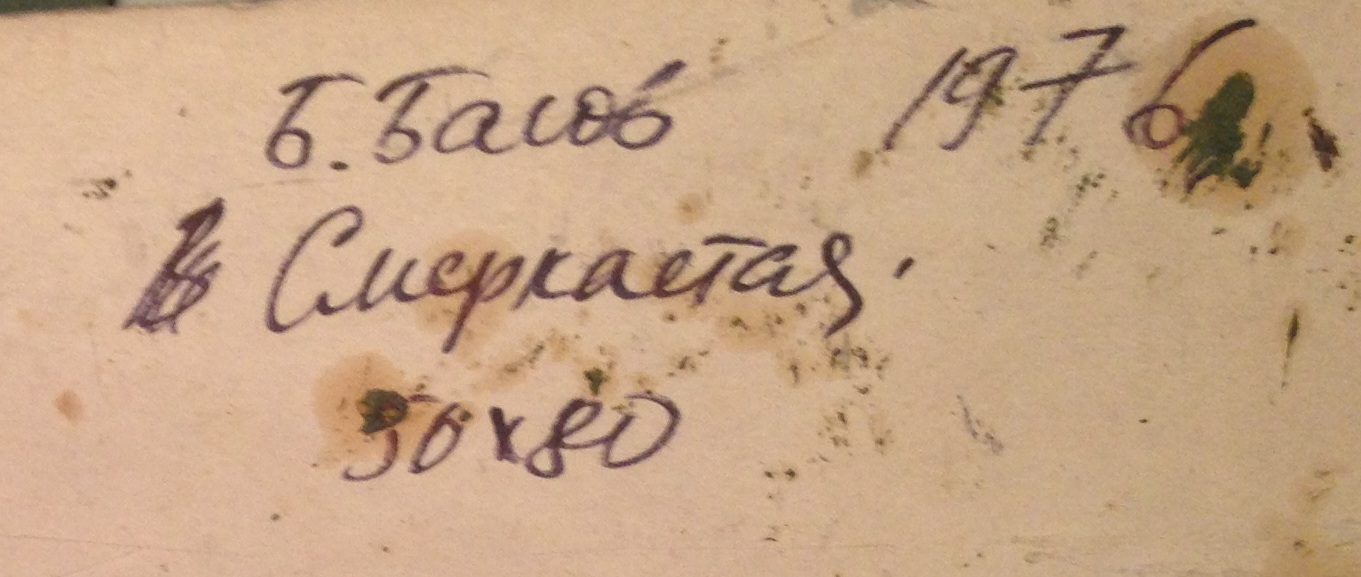 Б. Басов 1976
Смеркается.
50х80